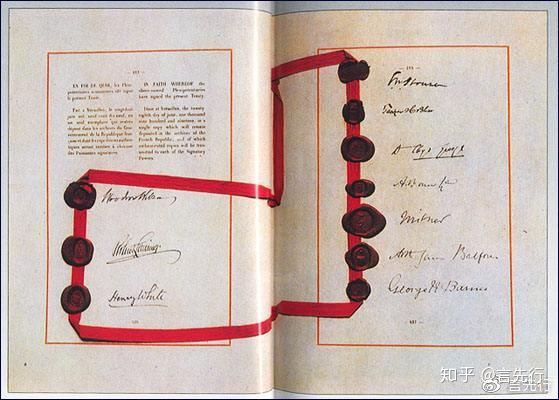 EN FOI DE QUOI, les Pléni-
potentiaires susnommés ont signé
le présent Traité.
Fait à Versailles, le vingt-huit
juin mil neuf cent dix-neuf, en
un seul exemplaire qui restera
déposé dans les archives du Gou-
vernement de la République fran-
çaise et dont les expéditions authen-
tiques seront remises à chacune
des Puissances signataires.
IN FAITH WHEREOF the
above-named Plenipotentiaries
have signed the present Treaty.
Done at Versailles, the twenty-
eighth day of June, one thousand
nine hundred and nineteen, in a
single copy which will remain
deposited in the archives of the
French Republic, and of which
authenticated copies will be trans-
mitted to each of the Signatory
Powers.
Woodrow Wilson
Robert Lansing
Henry White
D Lloyd George
Milner
Arthur James Balfour
George N Barnes
知乎 @言先行
@言先行